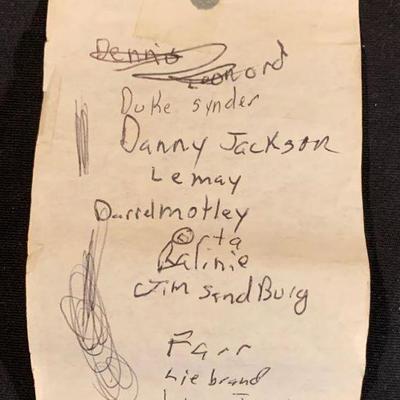 Dennis
Leonord
Duke synder
Danny Jackson
Lemay
Darrelmotley
Orta
Balinie
Jim SandBurg
Farr
Liebrand